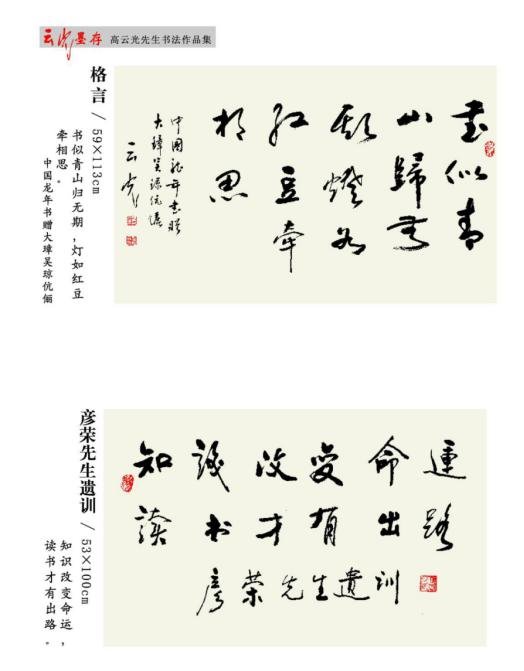 云光墨存 高云光先生书法作品集
格言 / 59×113cm
书似青山归无期，灯如红豆
牵相思。
中国龙年书赠大璋吴琼伉俪
書似青
山歸無
期燈如
紅豆牽
相思
中国龙年书赠
大璋吴琼伉俪
云光
彦荣先生遗训 / 53×100cm
知识改变命运，
读书才有出路。
知識改變命運
讀书才有出路
彦荣先生遺訓